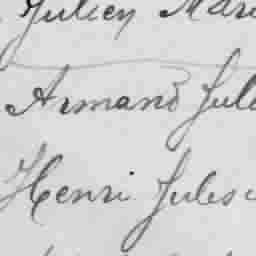 Julien Mari
Armand Jule
Henri Jules